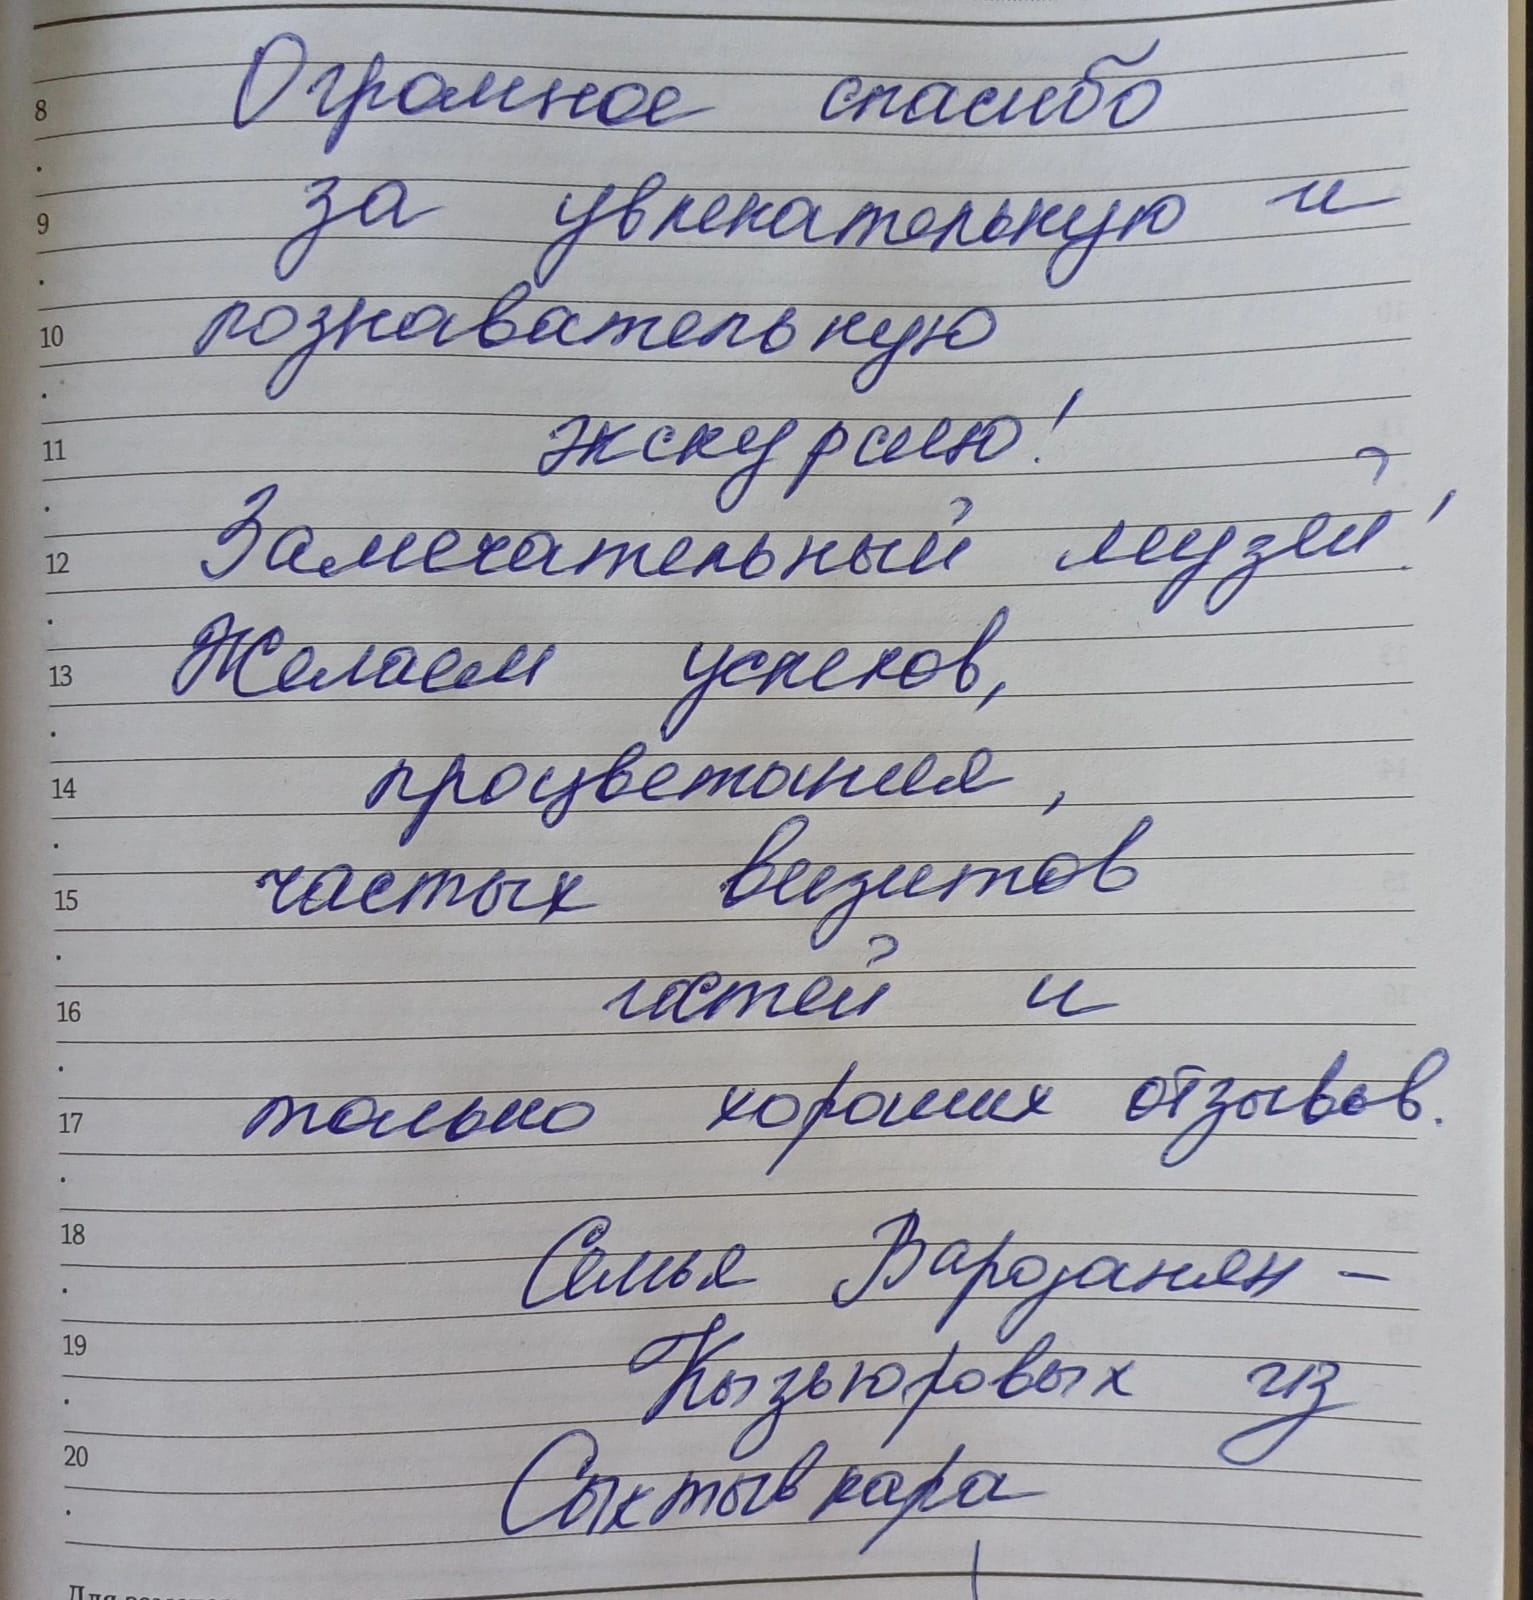 8 Огромное спасибо
9 за увлекательную и
10 познавательную
11 экскурсию!
12 Замечательный музей!
13 Желаем успехов,
14 процветания,
15 частых визитов
16 гостей и
17 только хороших отзывов.
18 Семья –
19 Кызъюровых из
20 Сыктывкара
Для